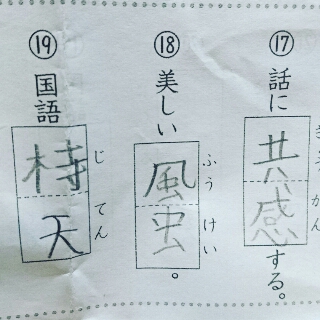 ⑰ 話に共感する。
かん
⑱ 美しい風虫。
ふうけい
⑲ 国語天
じてん